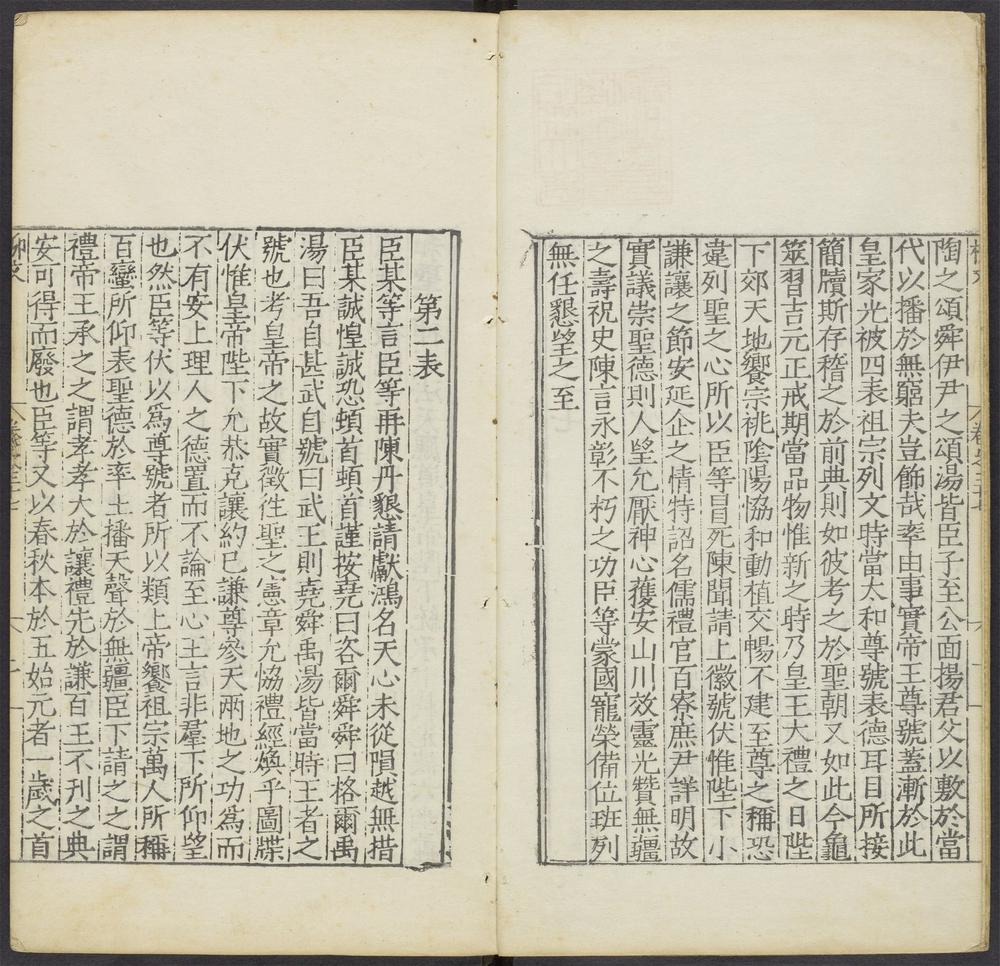 陶之頌舜伊尹之頌湯皆臣子至公面揚君父以敷於當
代以播於無窮夫豈飾哉率由事實帝王尊號蓋漸於此
皇家光被四表祖宗列文時當太和尊號表德耳目所接
簡牘斯存稽之於前典則如彼考之於聖朝又如此今龜
筮習吉元正戒期當品物惟新之時乃皇王大禮之日陛
下郊天地饗宗祧陰陽恊和動植交暢不建至尊之稱恐
違列聖之心所以臣等冒死陳聞請上徽號伏惟陛下小
謙讓之節安延企之情特詔名儒禮官百寮庶尹詳明故
實議崇聖德則人望允厭神心獲安山川效靈光贊無疆
之壽祝史陳言永彰不朽之功臣等蒙國寵榮備位班列
無任懇望之至
第二表
臣某等言臣等再陳丹懇請獻鴻名天心未從隕越無措
臣某誠惶誠恐頓首頓首謹按堯曰咨爾舜舜曰格爾禹
湯曰吾自甚武自號曰武王則堯舜禹湯皆當時王者之
號也考皇帝之故實徵徃聖之憲章允恊禮經煥乎圖牒
伏惟皇帝陛下允恭克讓約已謙尊參天兩地之功為而
不有安上理人之德置而不論至心王言非羣下所仰望
也然臣等伏以爲尊號者所以類上帝饗祖宗萬人所稱
百蠻所仰表聖德於率土播天聲於無疆臣下請之之謂
禮帝王承之之謂孝孝大於讓禮先於謙百王不刊之典
安可得而廢也臣等又以春秋本於五始元者一歲之首